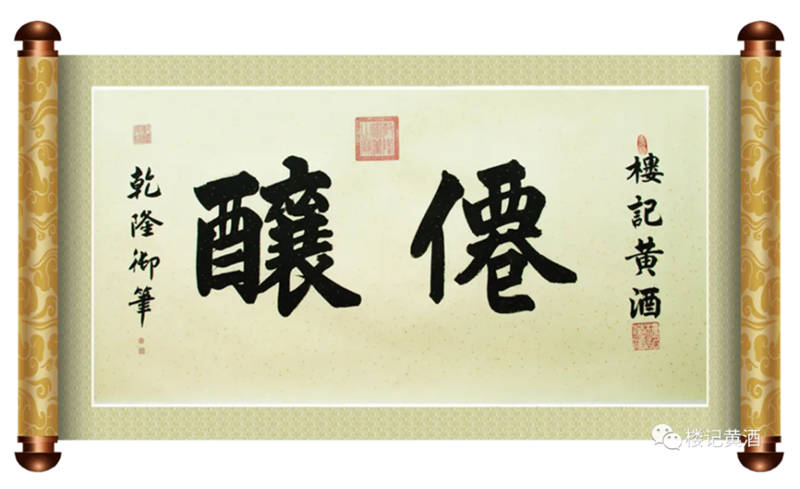 樓記黄酒
僊醸
乾隆御筆
楼记黄酒